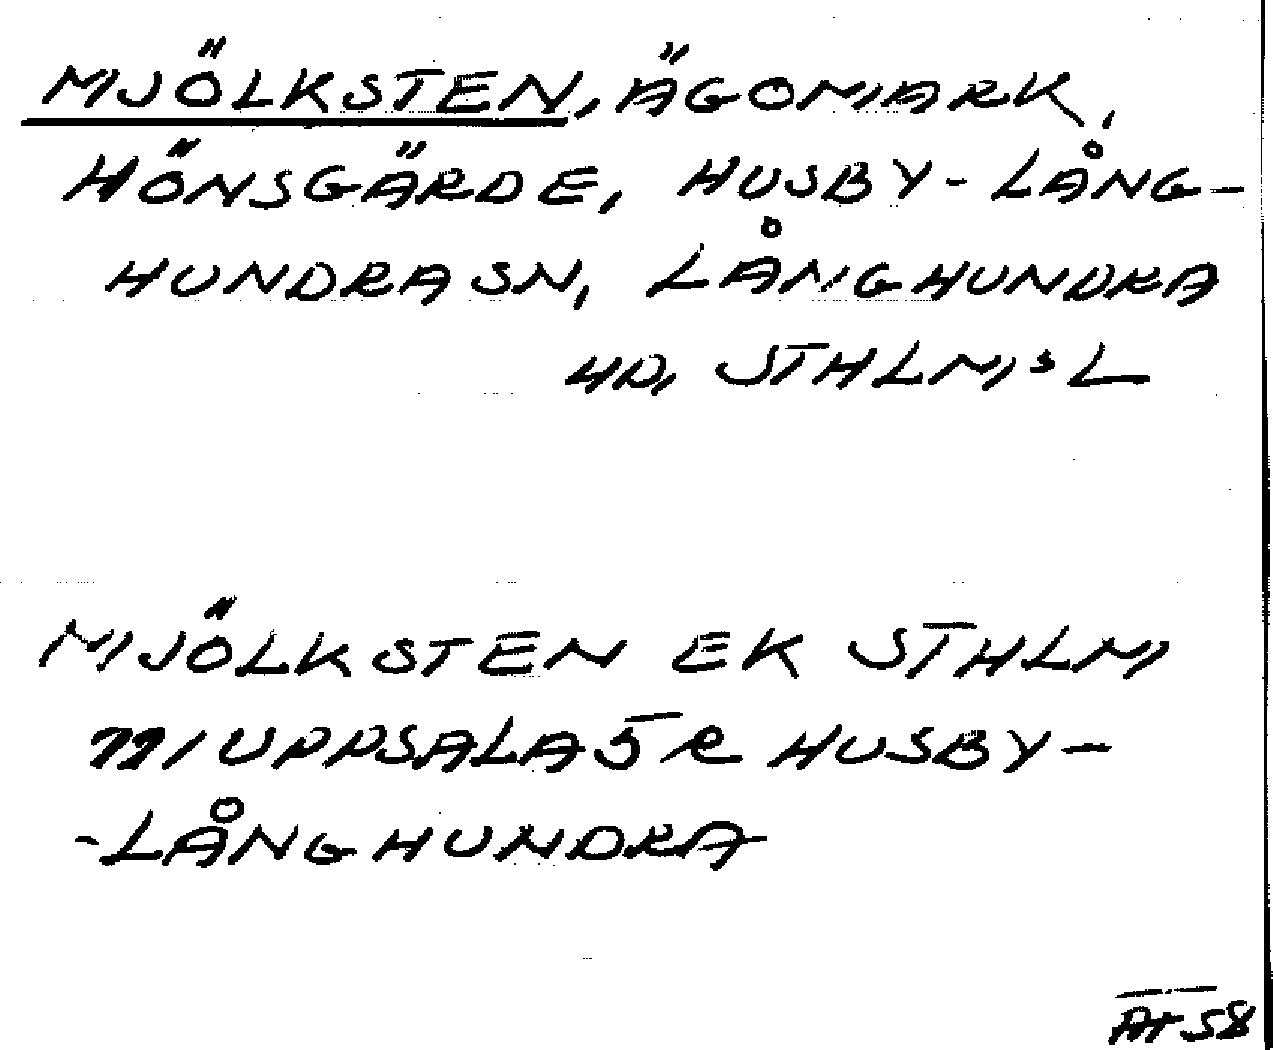 MJÖLKSTEN, ÄGOMARK,
HÖNSGÄRDE, HUSBY-LÅNG-
HUNDRA SN, LÅNGHUNDRA
HD, STHLM,S L
MJÖLKSTEN EK STHLM
UPPSALA HUSBY-
-LÅNGHUNDRA